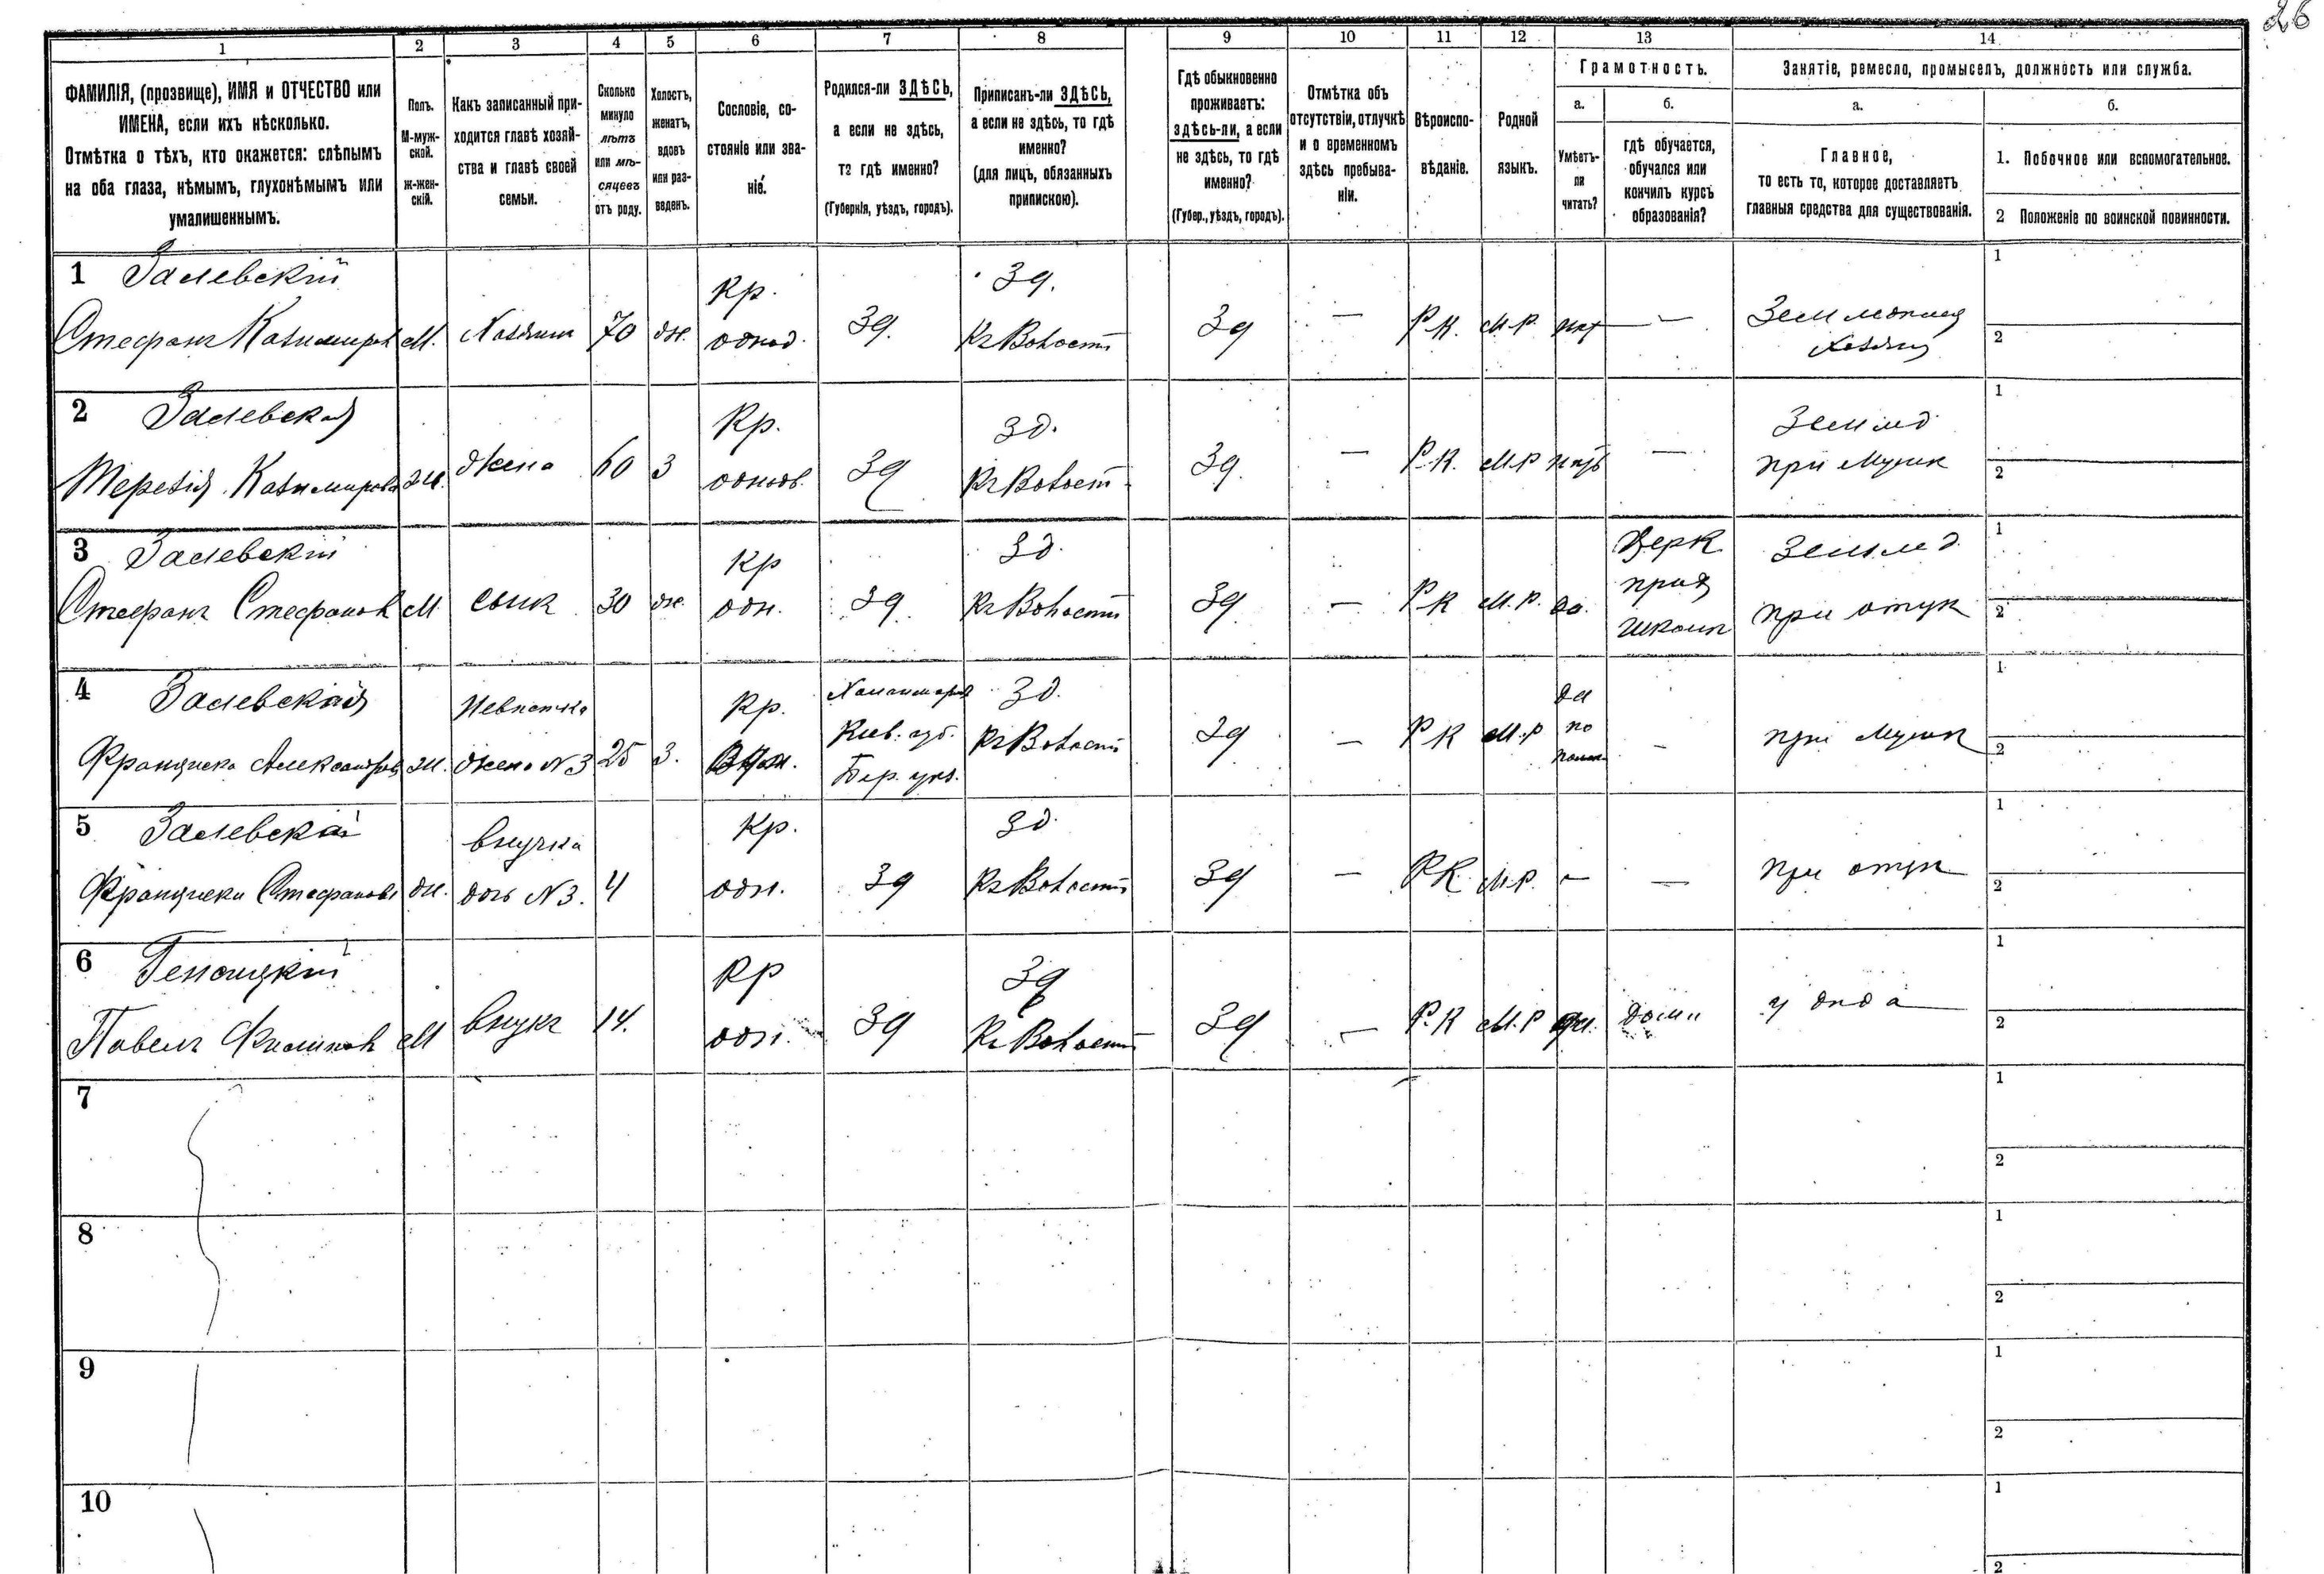 26
1 2 3 4 5 6 7 8 9 10 11 12 13 14
ФАМИЛІЯ, (прозвище), ИМЯ и ОТЧЕСТВО или
ИМЕНА, если ихъ нѣсколько.
Отмѣтка о тѣхъ, кто окажется: слѣпымъ
на оба глаза, нѣмымъ, глухонѣмымъ или
умалишеннымъ.
Полъ.
М-муж-
ской.
ж-жен-
скій.
Какъ записанный при-
ходится главѣ хозяй-
ства и главѣ своей
семьи.
Сколько
минуло
лѣтъ
или мѣ-
сяцевъ
отъ роду.
Холостъ,
женатъ,
вдовъ
или раз-
веденъ.
Сословіе, со-
стояніе или зва-
ніе.
Родился-ли ЗДѢСЬ,
а если не здѣсь,
то гдѣ именно?
(Губернія, уѣздъ, городъ).
Приписанъ-ли ЗДѢСЬ,
а если не здѣсь, то гдѣ
именно?
(для лицъ, обязанныхъ
припискою).
Гдѣ обыкновенно
проживаетъ:
здѣсь-ли, а если
не здѣсь, то гдѣ
именно?
(Губер., уѣздъ, городъ).
Отмѣтка объ
отсутствіи, отлучкѣ
и о временномъ
здѣсь пребыва-
ніи.
Вѣроиспо-
вѣданіе.
Родной
языкъ.
Грамотность.
а.
Умѣетъ-
ли
читать?
б.
гдѣ обучается,
обучался или
кончилъ курсъ
образованія?
Занятіе, ремесло, промыселъ, должность или служба.
а.
Главное,
то есть то, которое доставляетъ
главныя средства для существованія.
б.
1. Побочное или вспомогательное.
2 Положеніе по воинской повинности.
1 Залевскій
Стефанъ Казимиров
М.
70
Кр.
однод.
Зд.
Зд.
Зд
—
Р. К.
М. Р.
—
1
2
2 Залевская
Терезія Казимирова
ж.
жена
60
З
Кр.
Зд
Зд.
Зд.
—
Р. К.
М. Р
—
Землед
при мужѣ
1
2
3 Залевскій
Стефанъ Стефанов
М
сынъ
30
Кр
одн.
Зд.
Зд.
Зд.
—
Р К
М. Р.
да.
Церк
прих
школѣ
Землед.
при отцѣ
1
2
4 Залевская
Франциска Александров
ж.
Невѣстка
жена N 3
25
З.
Кр.
Кіев. губ.
Бер. уѣз.
Зд.
Зд
—
Р К
М. Р
да
по
—
при мужѣ
1
2
5 Залевская
Франциска Стефанов
ж.
внучка
дочь N 3.
4
Кр.
одн.
Зд
Зд.
Зд
—
Р К.
М. Р.
—
—
при отцѣ
1
2
6
Павелъ
М
внукъ
14.
Кр
одн.
Зд
Зд
Зд
—
Р. К
М. Р
дома
у дѣда
1
2
7
1
2
8
1
2
9
1
2
10
1
2